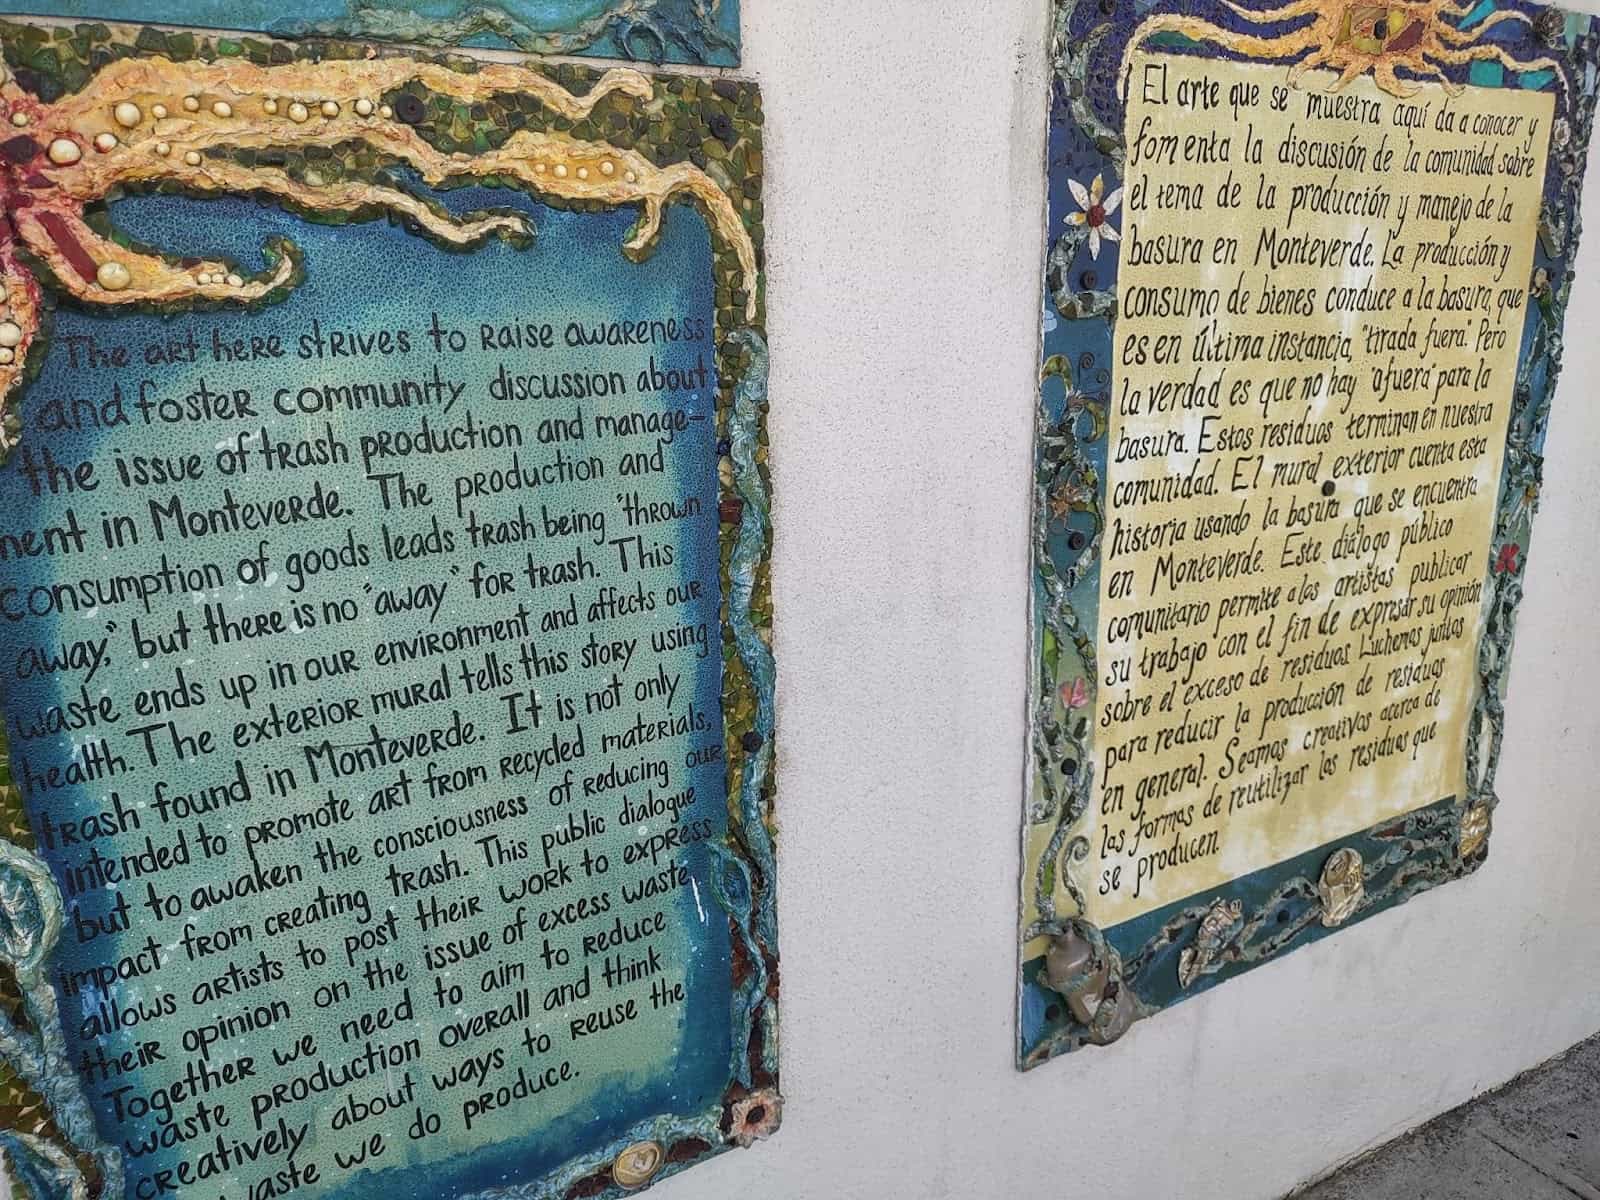 The art here strives to raise awareness
and foster community discussion about
the issue of trash production and manage-
ment in Monteverde. The production and
consumption of goods leads trash being "thrown
away," but there is no "away" for trash. This
waste ends up in our environment and affects our
health. The exterior mural tells this story using
trash found in Monteverde. It is not only
intended to promote art from recycled materials,
but to awaken the consciousness of reducing our
impact from creating trash. This public dialogue
allows artists to post their work to express
their opinion on the issue of excess waste.
Together we need to aim to reduce
waste production overall and think
creatively about ways to reuse the
waste we do produce.
El arte que se muestra aquí da a conocer y
fomenta la discusión de la comunidad sobre
el tema de la producción y manejo de la
basura en Monteverde. La producción y
consumo de bienes conduce a la basura, que
es en última instancia, "tirada fuera". Pero
la verdad es que no hay "afuera" para la
basura. Estos residuos terminan en nuestra
comunidad. El mural exterior cuenta esta
historia usando la basura que se encuentra
en Monteverde. Este diálogo público
comunitario permite a los artistas publicar
su trabajo con el fin de expresar su opinión
sobre el exceso de residuos. Luchemos juntos
para reducir la producción de residuos
en general. Seamos creativos acerca de
las formas de reutilizar los residuos que
se producen.